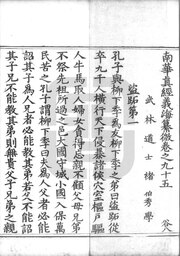 南華真經義海纂微卷之九十五
武林道士褚伯秀學
盜跖第一
孔子與柳下季爲友柳下季之弟曰盜跖從
卒九千人橫行天下侵暴諸侯穴室樞戶驅
人牛馬取人婦女貪得忘親不顧父母兄弟
不祭先祖所過之邑大國守城小國入保萬
民苦之孔子謂柳下季曰夫爲人父者必能
詔其子爲人兄者必能教其弟若父不能詔
其子兄不能教其弟則無貴父子兄弟之親